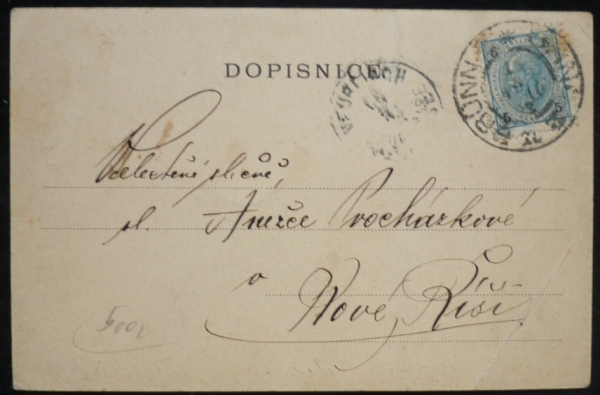 DOPISNICE
BRÜNN
Velectěné slečně,
sl. Anežce Procházkové
v
Nové Říši